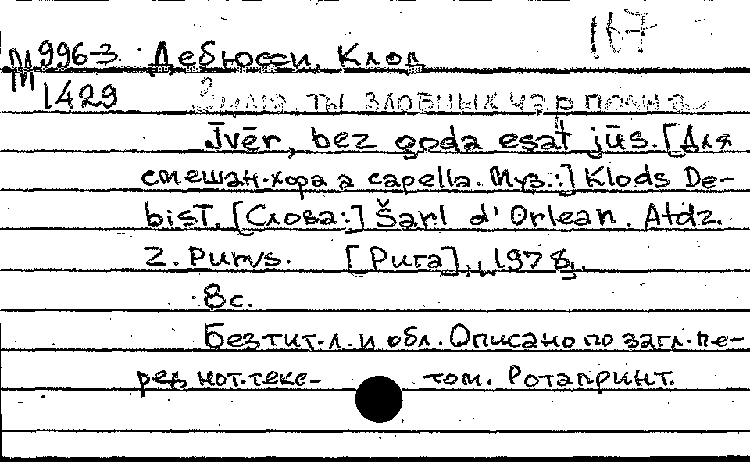 167
М 996-3 Дебюсси, Клод
1429 Зима, ты злобных чар полна
Jvēr, bez goda esat jūs. [Для
смешан. хора a capella. Муз.:] Klods De-
bisī. [Слова:] Šarl d'Orlean. Atdz.
Z. Purvs. [Рига], 1978.
8с.
Без тит. л. и обл. Описано по загл. пе-
ред нот. текс- том. Ротапринт.